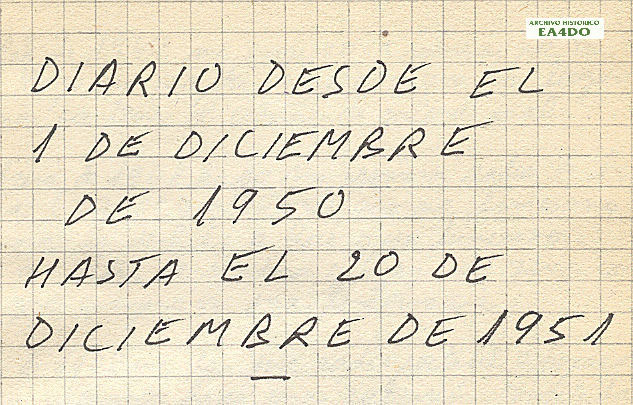 ARCHIVO HISTORICO
EA4DO
DIARIO DESDE EL
1 DE DICIEMBRE
DE 1950
HASTA EL 20 DE
DICIEMBRE DE 1951